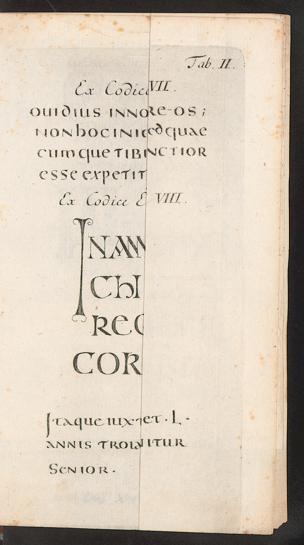 Tab. II.
Ex Codice VII.
OUIDIUS INNO RE-OS;
NONhOCINI edquae
cumqueTIBI NCTIOR
esse expetit
Ex Codice E VIII.
INAM
ChI
REC
COR
Itaque iuxt et. L.
ANNIS TROIA ITUR
SENIOR.